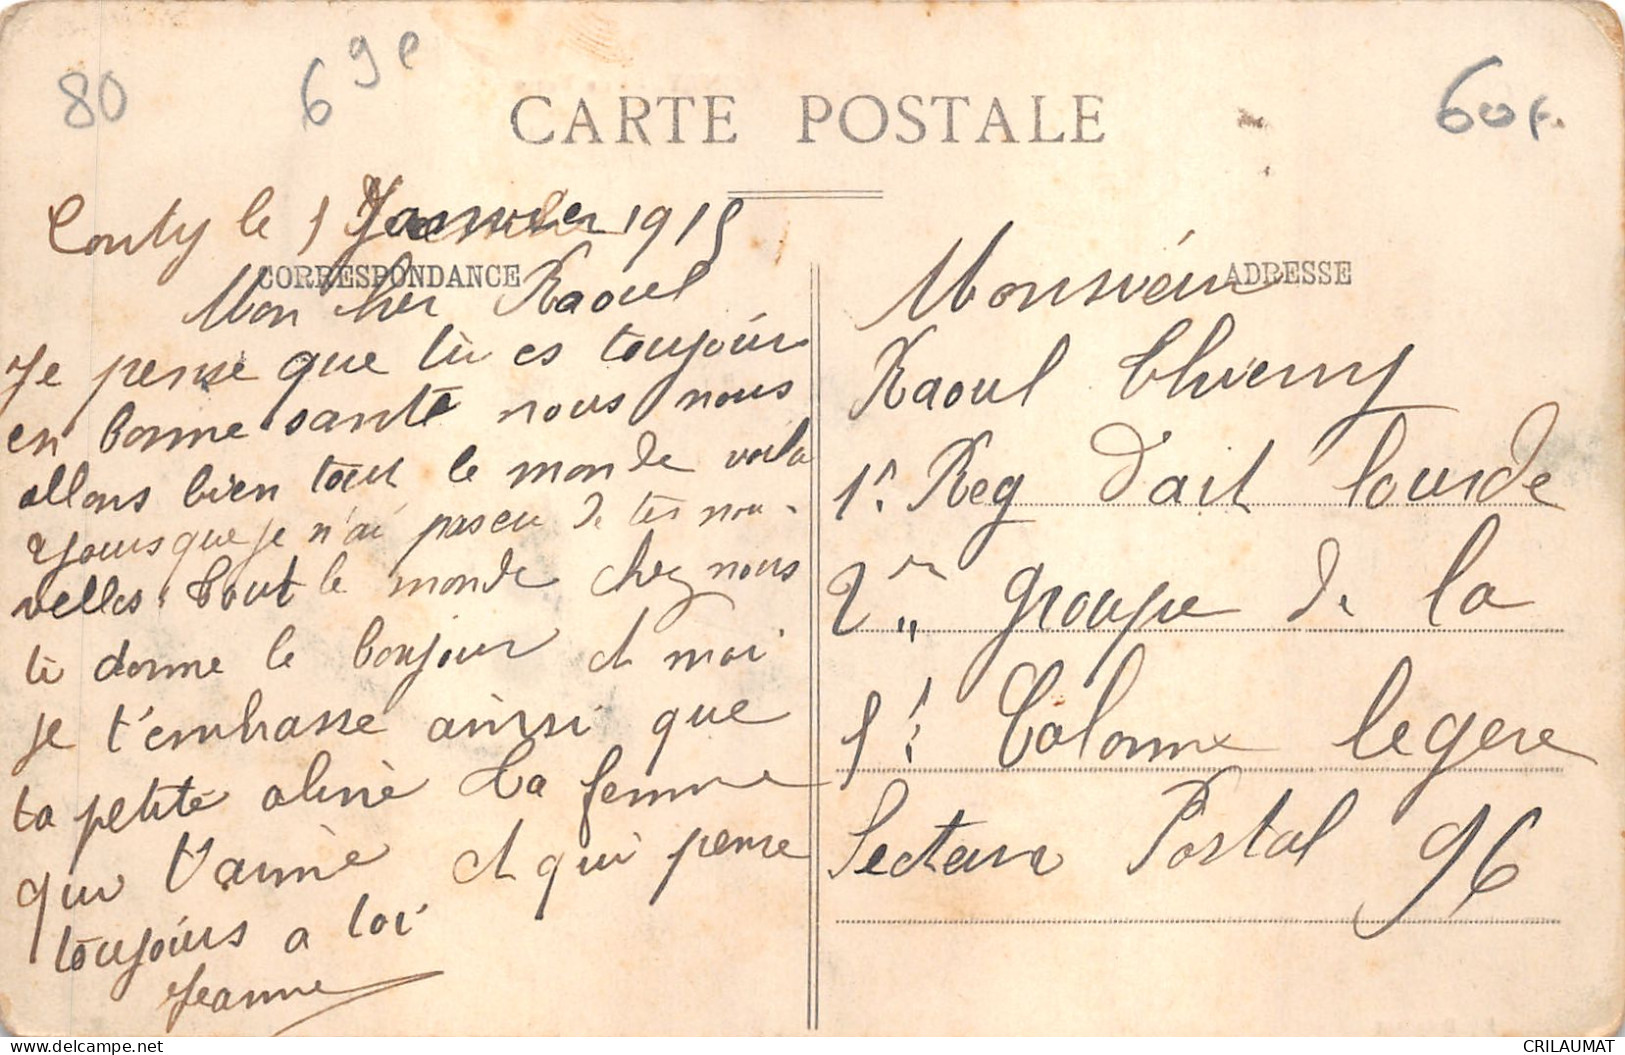 80
69e
60f.
CARTE POSTALE
Conty le 1 Janvier 1915
CORRESPONDANCE
Mon cher Raoul
Je pense que tu es toujour
en bonne santé nous nous
allons bien tout le monde voila
jours que je n'ai pas eu de tes nou-
velles. Tout le monde chez nous
te donne le bonjour et moi
je t'embrasse ainsi que
ta petite aline ta femme
qui t'aime et qui pense
toujours a toi
Jeanne
ADRESSE
Monsieur
Raoul Thierry
1r Reg d'art lourde
2m groupe de la
1r Colonne legere
Secteur Postal 96
delcampe.net
CRILAUMAT